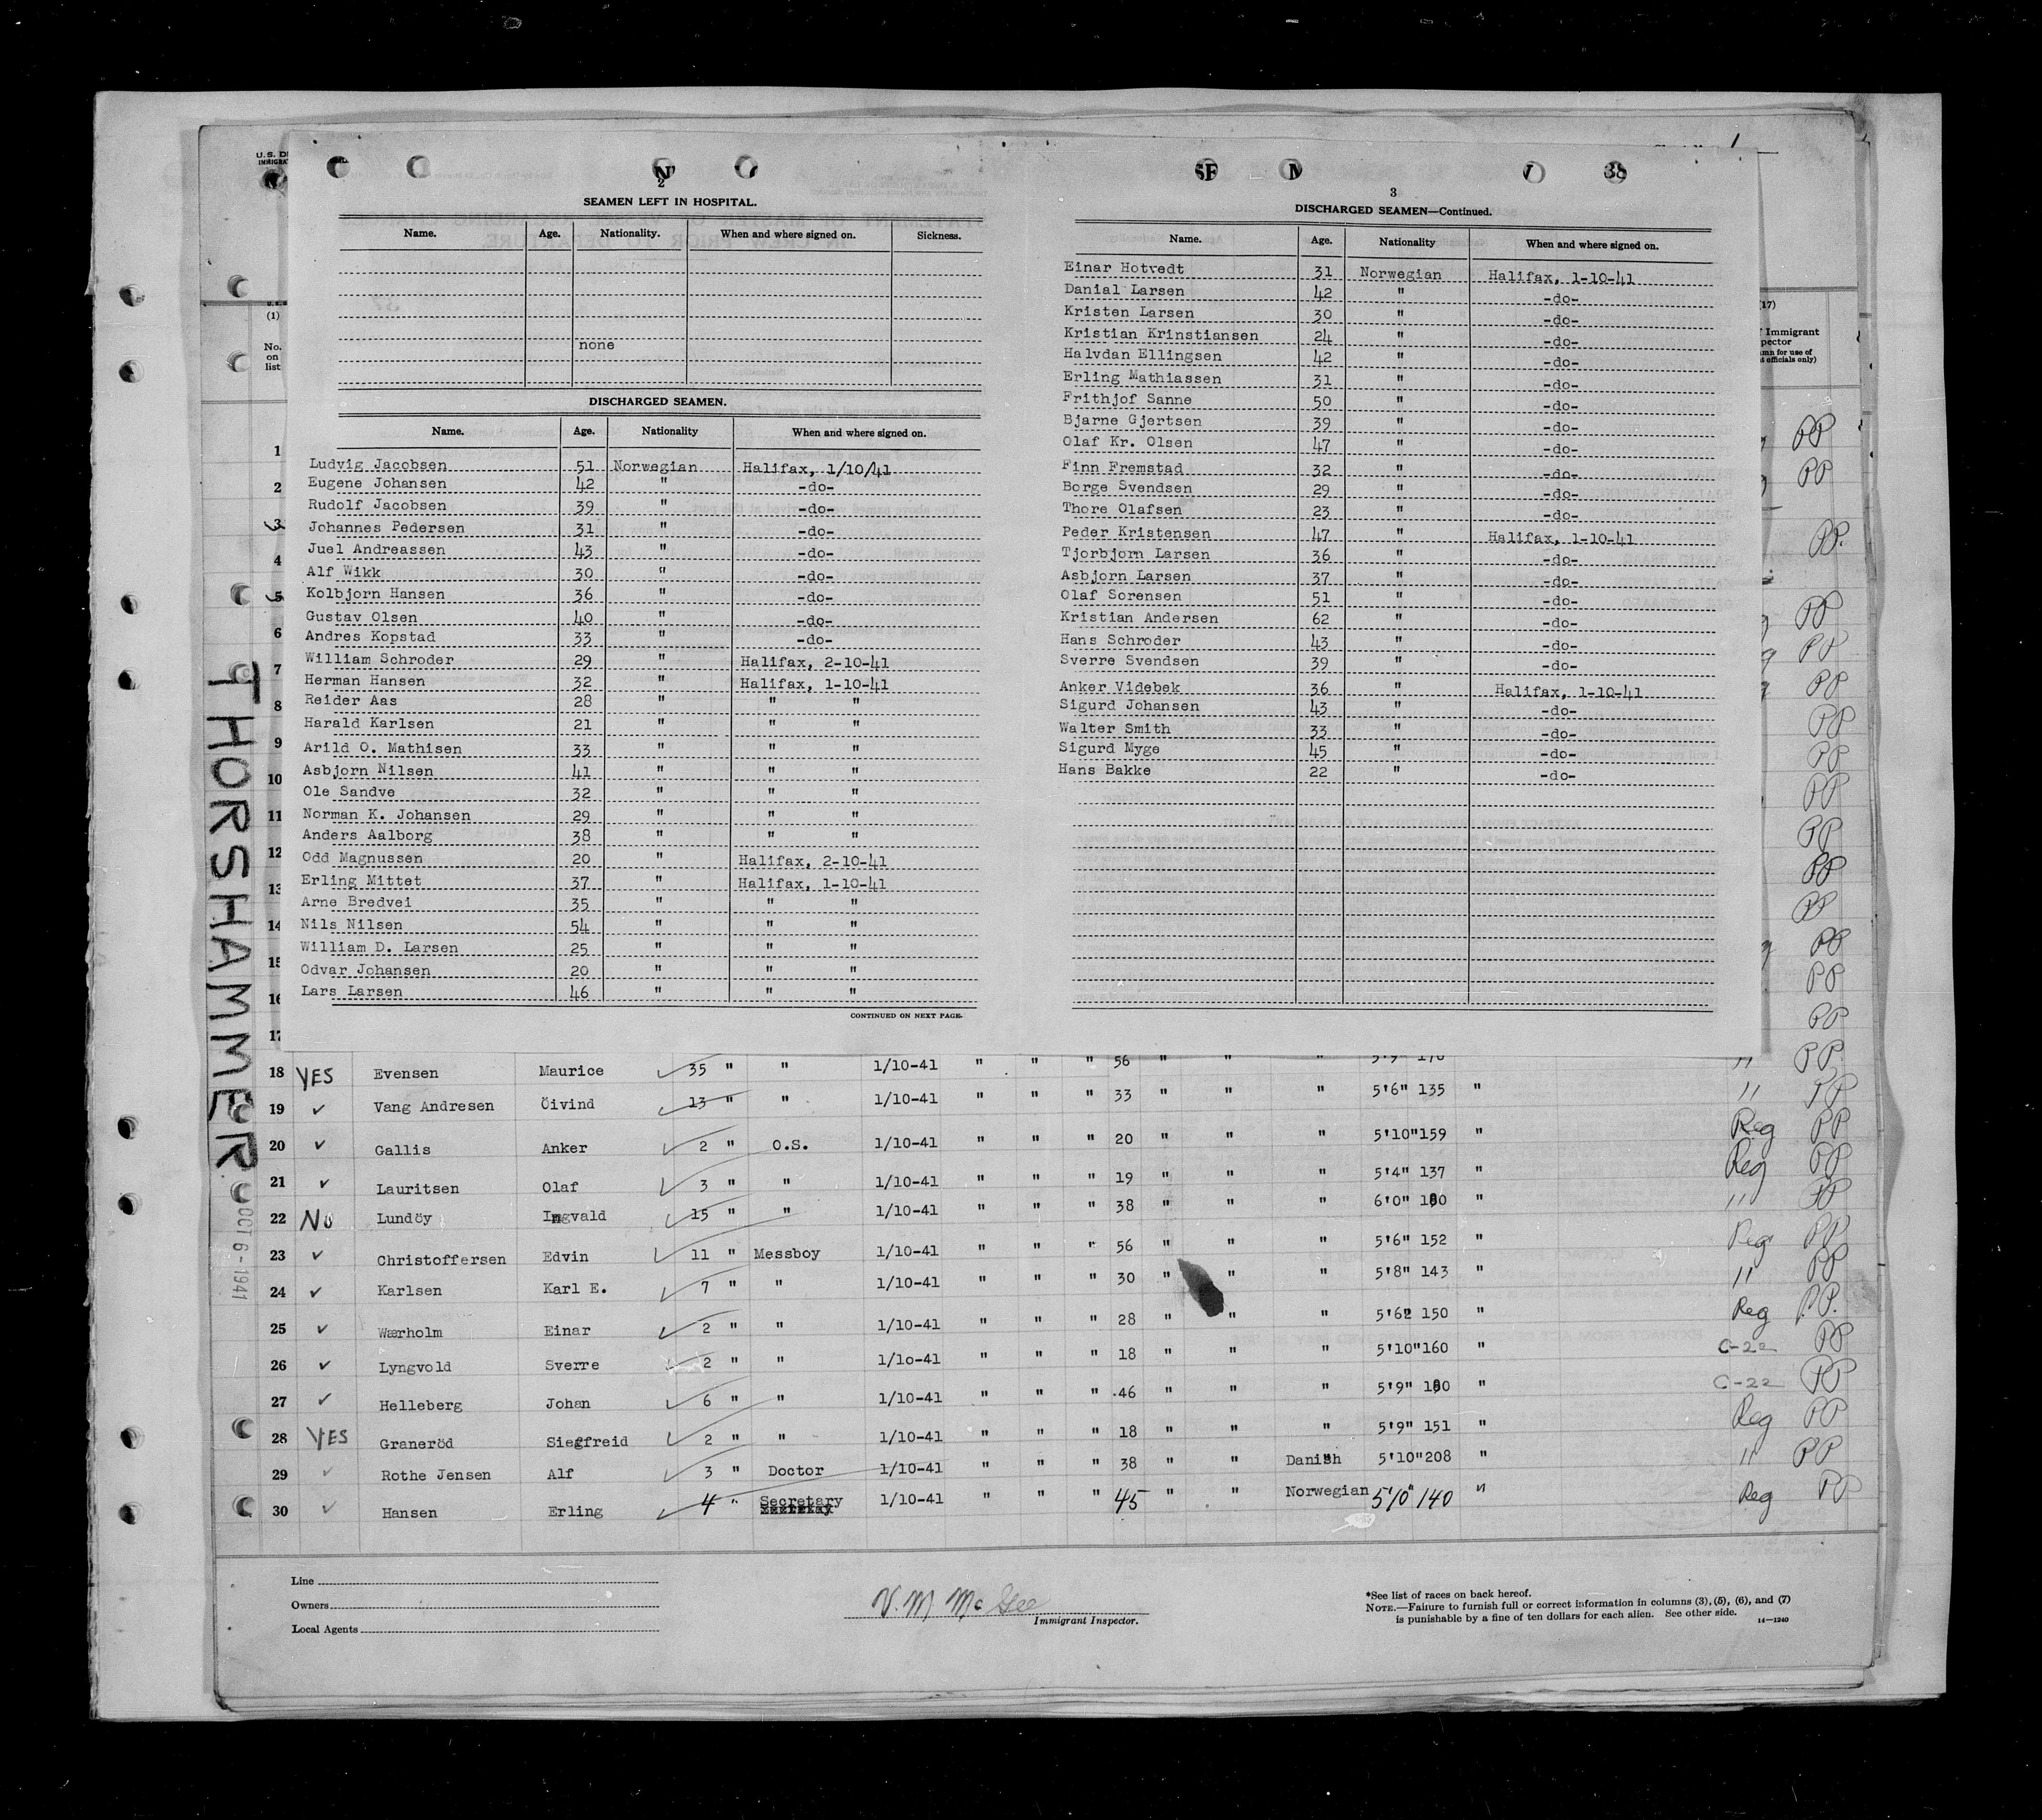 U.S. D
IMMIGRA
2
SEAMEN LEFT IN HOSPITAL.
Name. Age. Nationality. When and where signed on. Sickness.
none
DISCHARGED SEAMEN.
Name. Age. Nationality When and where signed on.
Ludvig Jacobsen 51 Norwegian Halifax, 1/10/41
Eugene Johansen 42 " -do-
Rudolf Jacobsen 39 " -do-
Johannes Pedersen 31 " -do-
Juel Andreassen 43 " -do-
Alf Wikk 30 " -do-
Kolbjorn Hansen 36 " -do-
Gustav Olsen 40 " -do-
Andres Kopstad 33 " -do-
William Schroder 29 " Halifax, 2-10-41
Herman Hansen 32 " Halifax, 1-10-41
Reider Aas 28 " " "
Harald Karlsen 21 " " "
Arild O. Mathisen 33 " " "
Asbjorn Nilsen 41 " " "
Ole Sandve 32 " " "
Norman K. Johansen 29 " " "
Anders Aalborg 38 " " "
Odd Magnussen 20 " Halifax, 2-10-41
Erling Mittet 37 " Halifax, 1-10-41
Arne Bredvei 35 " " "
Nils Nilsen 54 " " "
William D. Larsen 25 " " "
Odvar Johansen 20 " " "
Lars Larsen 46 " " "
CONTINUED ON NEXT PAGE.
3
DISCHARGED SEAMEN—Continued.
Name. Age. Nationality When and where signed on.
Einar Hotvedt 31 Norwegian Halifax, 1-10-41
Danial Larsen 42 " -do-
Kristen Larsen 30 " -do-
Kristian Krinstiansen 24 " -do-
Halvdan Ellingsen 42 " -do-
Erling Mathiassen 31 " -do-
Frithjof Sanne 50 " -do-
Bjarne Gjertsen 39 " -do-
Olaf Kr. Olsen 47 " -do-
Finn Fremstad 32 " -do-
Borge Svendsen 29 " -do-
Thore Olafsen 23 " -do-
Peder Kristensen 47 " Halifax, 1-10-41
Tjorbjorn Larsen 36 " -do-
Asbjorn Larsen 37 " -do-
Olaf Sorensen 51 " -do-
Kristian Andersen 62 " -do-
Hans Schroder 43 " -do-
Sverre Svendsen 39 " -do-
Anker Videbek 36 " Halifax, 1-10-41
Sigurd Johansen 43 " -do-
Walter Smith 33 " -do-
Sigurd Myge 45 " -do-
Hans Bakke 22 " -do-
(1)
No.
on
list
(17)
Immigrant
pector
mn for use of
officials only)
1 PP
2 PP
3 PP.
4
5 PP
6 PP
7 PP
8 PP
9 PP
10 PP
11 PP
12 PP
13 PP
14 PP
15 PP
16 PP
17 PP
THORSHAMMER
OCT 6-1941
18 YES Evensen Maurice 35 " " 1/10-41 " " " 56 " " " 5'9" 170 " PP
19 Vang Andresen Öivind 13 " " 1/10-41 " " " 33 " " " 5'6" 135 " " PP
20 Gallis Anker 2 " O.S. 1/10-41 " " " 20 " " " 5'10" 159 " Reg PP
21 Lauritsen Olaf 3 " " 1/10-41 " " " 19 " " " 5'4" 137 " Reg PP
22 No Lundöy Ingvald 15 " " 1/10-41 " " " 38 " " " 6'0" 180 " " PP
23 Christoffersen Edvin 11 " Messboy 1/10-41 " " " 56 " " " 5'6" 152 " Reg PP
24 Karlsen Karl E. 7 " " 1/10-41 " " " 30 " " " 5'8" 143 " " PP
25 Wærholm Einar 2 " " 1/10-41 " " " 28 " " " 5'62 150 " Reg PP.
26 Lyngvold Sverre 2 " " 1/1o-41 " " " 18 " " " 5'10" 160 " C-22 PP
27 Helleberg Johan 6 " " 1/10-41 " " " 46 " " " 5'9" 180 " C-22 PP
28 YES Graneröd Siegfreid 2 " " 1/10-41 " " " 18 " " " 5'9" 151 " Reg PP
29 Rothe Jensen Alf 3 " Doctor 1/10-41 " " " 38 " " Danish 5'10" 208 " " PP
30 Hansen Erling 4 " Secretary 1/10-41 " " " 45 " " Norwegian 5'10" 140 " Reg PP
Line
Owners
Local Agents
V. M. McGee
Immigrant Inspector.
*See list of races on back hereof.
NOTE.—Failure to furnish full or correct information in columns (3), (5), (6), and (7)
is punishable by a fine of ten dollars for each alien. See other side.
14—1240